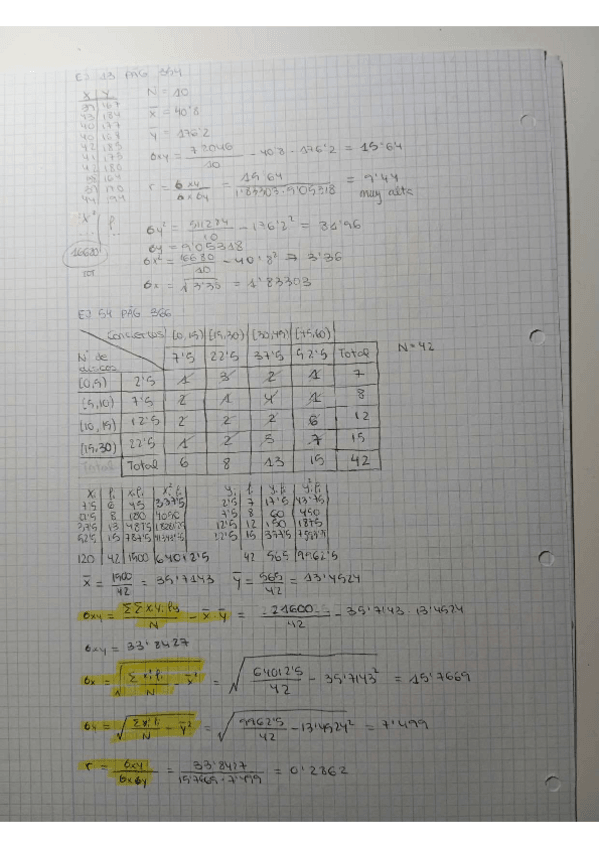 EJ 13 PÁG 354
X Y
39 167
43 184
40 177
40 168
42 185
41 175
42 180
39 164
39 170
44 194
N = 10
x̄ = 40'8
ȳ = 176'2
σxy = 72046/10 - 40'8 · 176'2 = 15'64
r = σxy/σx σy = 15'64/1'83303 · 9'05318 = 9'44
muy alta
X² f.
16680
σy² = 311284/10 - 176'2² = 81'96
σy = 9'05318
σx² = 16680/10 - 40'8² → 3'36
σx = √3'36 = 1'83303
EJ 54 PÁG 366
Conciertos [0,15) [15,30) [30,45) [45,60)
Nº de discos 7'5 22'5 37'5 52'5 Total
[0,5) 2'5 1 3 2 1 7
[5,10) 7'5 2 1 4 1 8
[10,15) 12'5 2 2 2 6 12
[15,30) 22'5 1 2 5 7 15
Total Total 6 8 13 15 42
N = 42
xi fi xi·fi xi²·fi
7'5 6 45 337'5
22'5 8 180 4050
37'5 13 487'5
52'5 15 787'5
120 42 1500 64012'5
yi fi yi·fi yi²·fi
2'5 7 17'5 43'75
7'5 8 60 450
12'5 12 150 1875
15
42 565 9962'5
x̄ = 1500/42 = 35'7143 ȳ = 565/42 = 13'4524
σxy = ΣΣxy·fxy/N - x̄·ȳ = 21600/42 - 35'7143 · 13'4524
σxy = 33'8427
σx = √(Σxi²fi/N - x̄²) = √(64012'5/42 - 35'7143²) = 15'7669
σy = √(Σyi²fi/N - ȳ²) = √(9962'5/42 - 13'4524²) = 7'499
r = σxy/σxσy = 33'8427/15'7669 · 7'499 = 0'2862